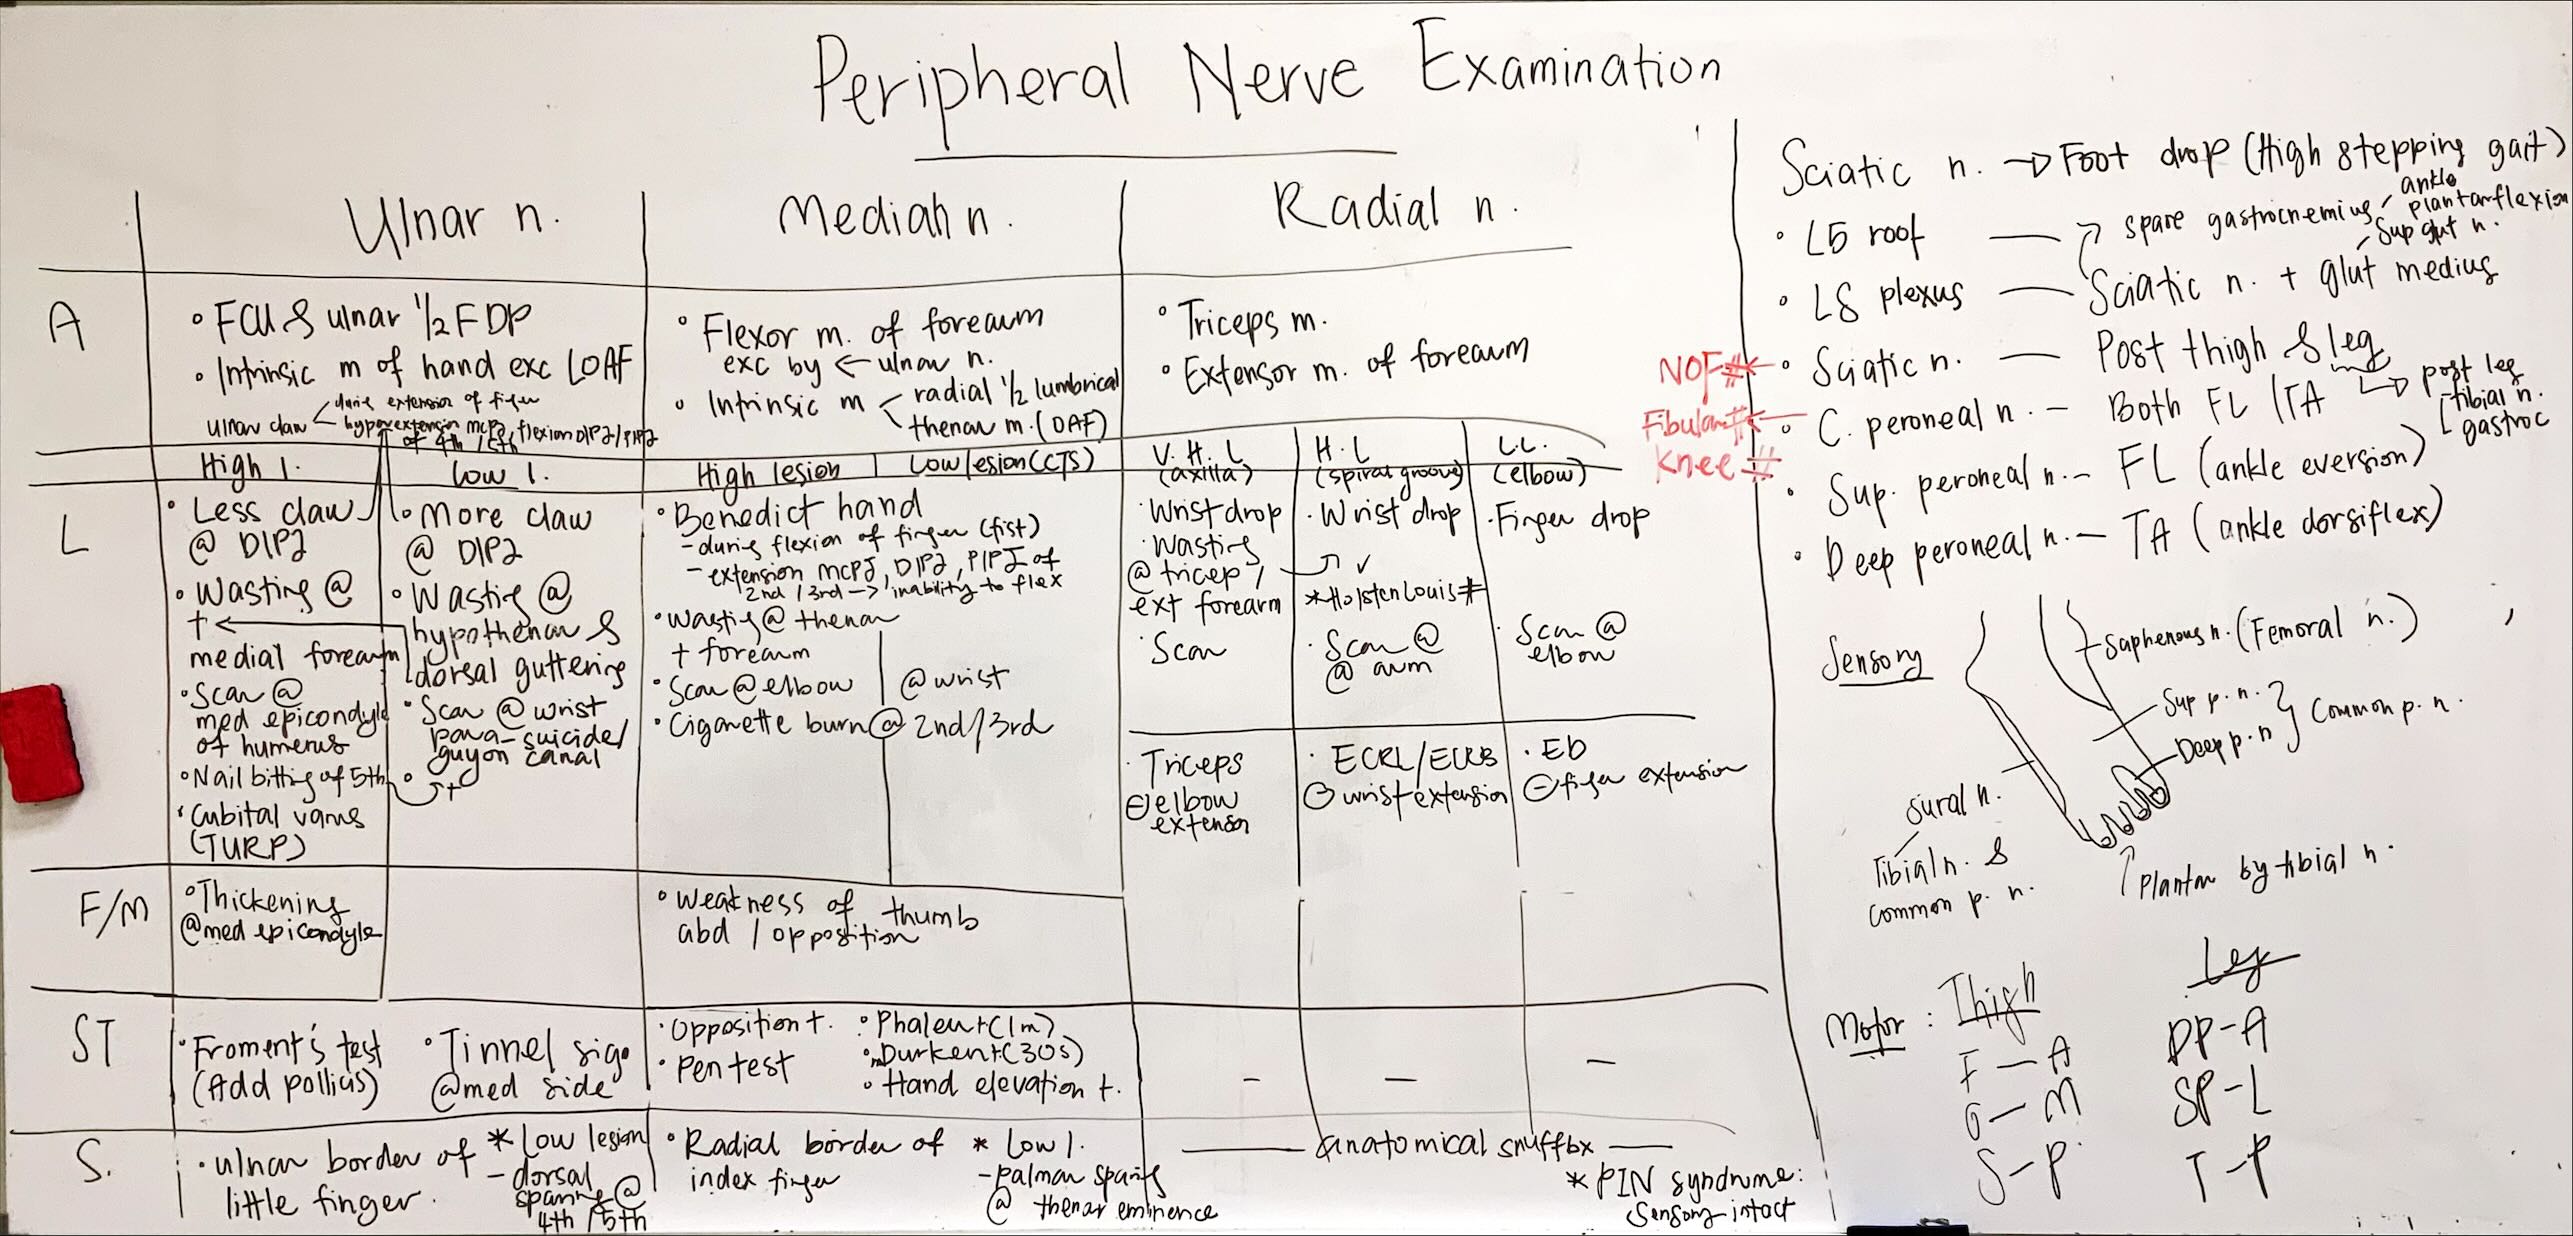 Peripheral Nerve Examination
Ulnar n.
Median n.
Radial n.
A
∘ FCU & ulnar 1/2 FDP
∘ Intrinsic m of hand exc LOAF
ulnar claw
during extension of finger
hyperextension MCPJ, flexion DIPJ/PIPJ
of 4th / 5th
∘ Flexor m. of forearm
exc by ← ulnar n.
∘ Intrinsic m
radial 1/2 lumbrical
thenar m. (OAF)
∘ Triceps m.
∘ Extensor m. of forearm
High l.
Low l.
High lesion
Low lesion (CTS)
V.H.L
(axilla)
H.L
(spiral groove)
L.L.
(elbow)
L
• Less claw
@ DIPJ
• Wasting @
+ ←
medial forearm
• Scar @
med epicondyle
of humerus
• Nail bitting of 5th
• Cubital varus
(TURP)
• More claw
@ DIPJ
• Wasting @
hypothenar &
dorsal guttering
• Scar @ wrist
para-suicide/
guyon canal
• +
• Benedict hand
- during flexion of finger (fist)
- extension MCPJ, DIPJ, PIPJ of
2nd / 3rd -> inability to flex
• Wasting @ thenar
+ forearm
• Scar @ elbow
@ wrist
• Cigarette burn @ 2nd/3rd
• Wrist drop
• Wasting
@ tricep /
ext forearm
• Scar
• Wrist drop
✓
* Holsten Louis #
• Scar @
@ arm
• Finger drop
• Scar @
elbow
• Triceps
⊖ elbow
extensor
• ECRL/ECRB
⊖ wrist extension
• ED
⊖ finger extension
F/M
• Thickening
@ med epicondyle
• Weakness of thumb
abd / opposition
ST
• Froment's test
(Add pollicis)
• Tinnel sign
@ med side
• Opposition t.
• Pen test
• Phalen t (1m)
• Durken t (30s)
• Hand elevation t.
-
-
-
S.
• ulnar border of
little finger.
* Low lesion
- dorsal
sparing @
4th / 5th
• Radial border of
index finger
* Low l.
- palmar sparing
@ thenar eminence
anatomical snuffbx
* PIN syndrome:
Sensory intact
Sciatic n. → Foot drop (High stepping gait)
• L5 root — spare gastrocnemius
ankle
plantarflexion
Sup glut n.
• LS plexus — Sciatic n. + glut medius
NOF #
• Sciatic n. — Post thigh & leg
post leg
tibial n.
gastroc
Fibular #
• C. peroneal n. - Both FL / TA
Knee #
• Sup. peroneal n. - FL (ankle eversion)
• Deep peroneal n. - TA (ankle dorsiflex)
Sensory
Saphenous n. (Femoral n.)
Sup p. n.
Deep p. n
Common p. n.
Sural n.
Tibial n. &
common p. n.
Plantar by tibial n.
Motor :
Thigh
Leg
F - A
O - M
S - P
DP - A
SP - L
T - P